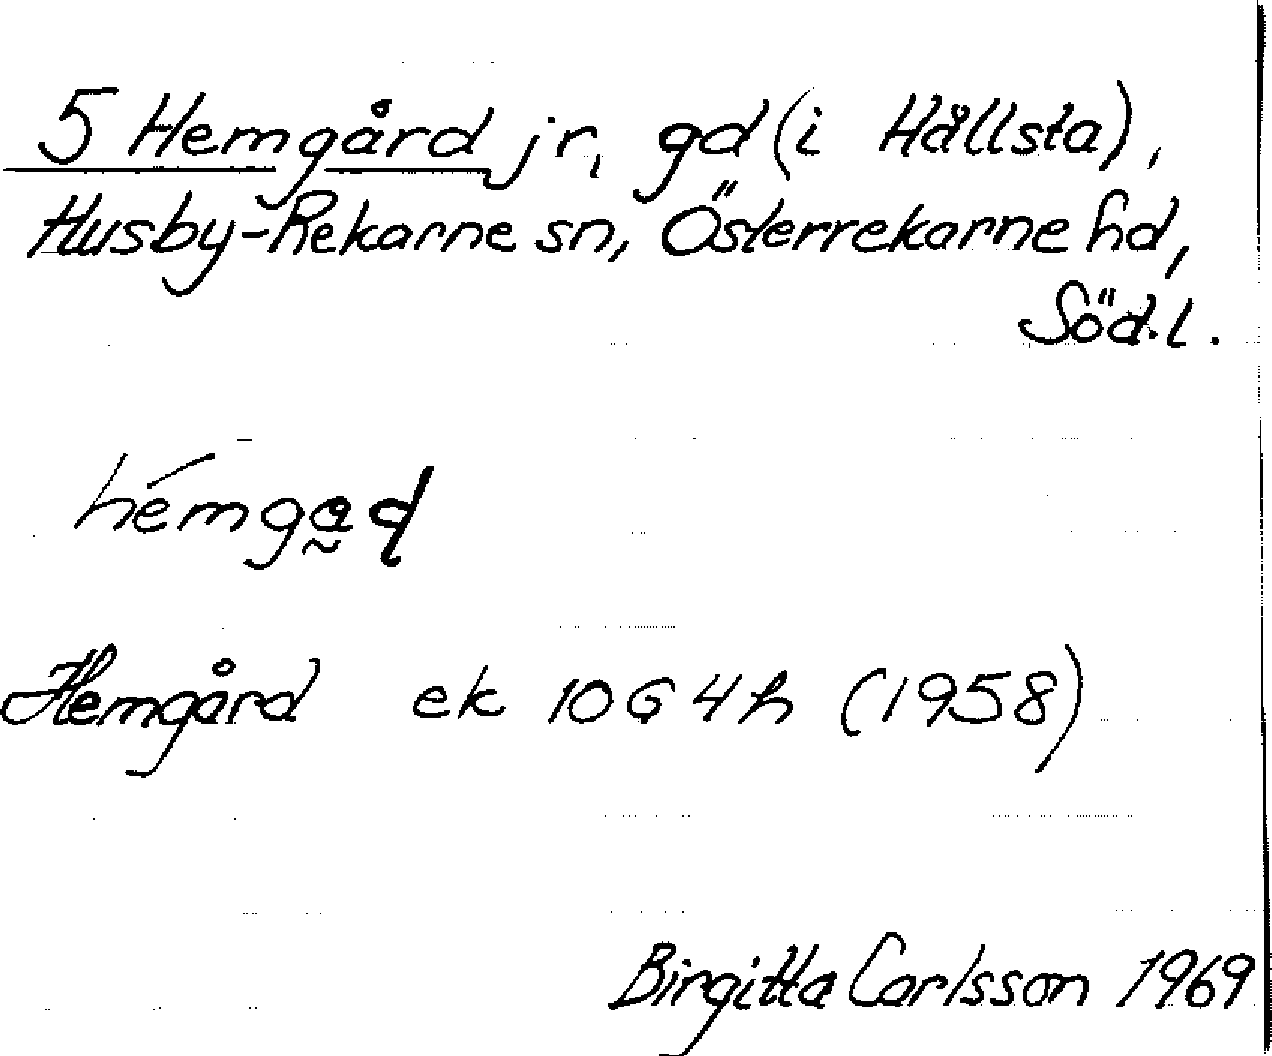 5 Hemgård jr, gd (i Hållsta),
Husby-Rekarne sn, Österrekarne hd,
Söd.l.
Hemgård ek 10G4h (1958)
Birgitta Carlsson 1969